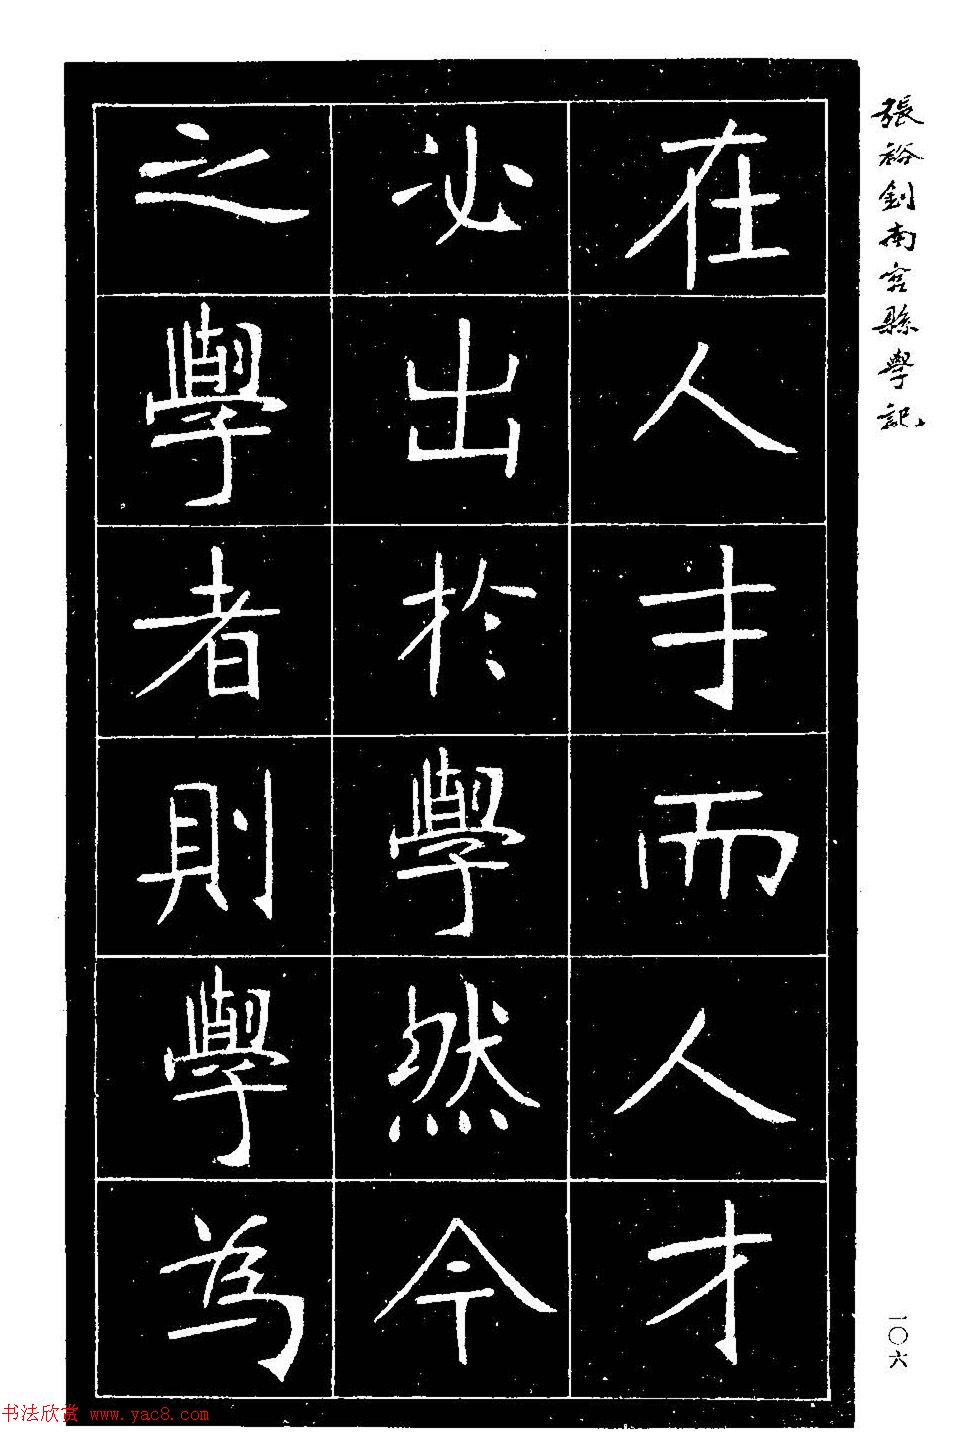 張裕釗南宮縣學記
在人才而人才
必出於學然今
之學者則學為
一〇六
书法欣赏 www.yac8.com